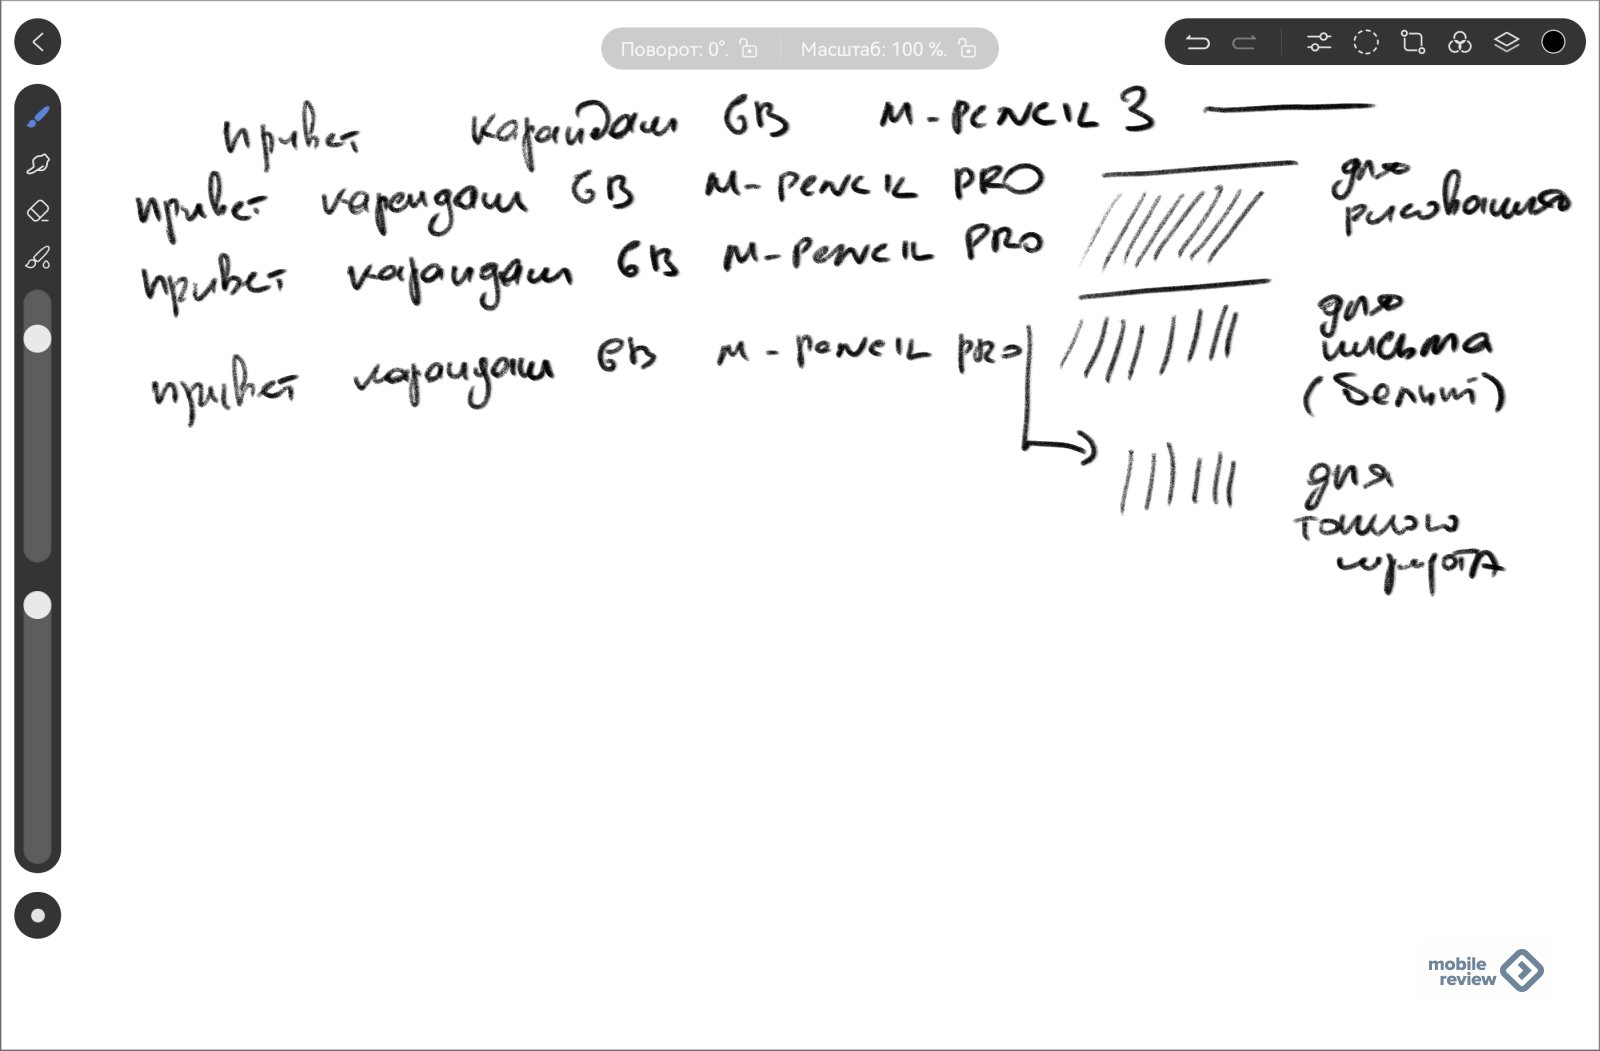 Поворот: 0°. Масштаб: 100 %.
привет карандаш 6B M-PENCIL 3
привет карандаш 6B M-PENCIL PRO
для рисования
привет карандаш 6B M-PENCIL PRO
для письма (белый)
привет карандаш 6B M-PENCIL PRO
для тонкого шрифта
mobile
review